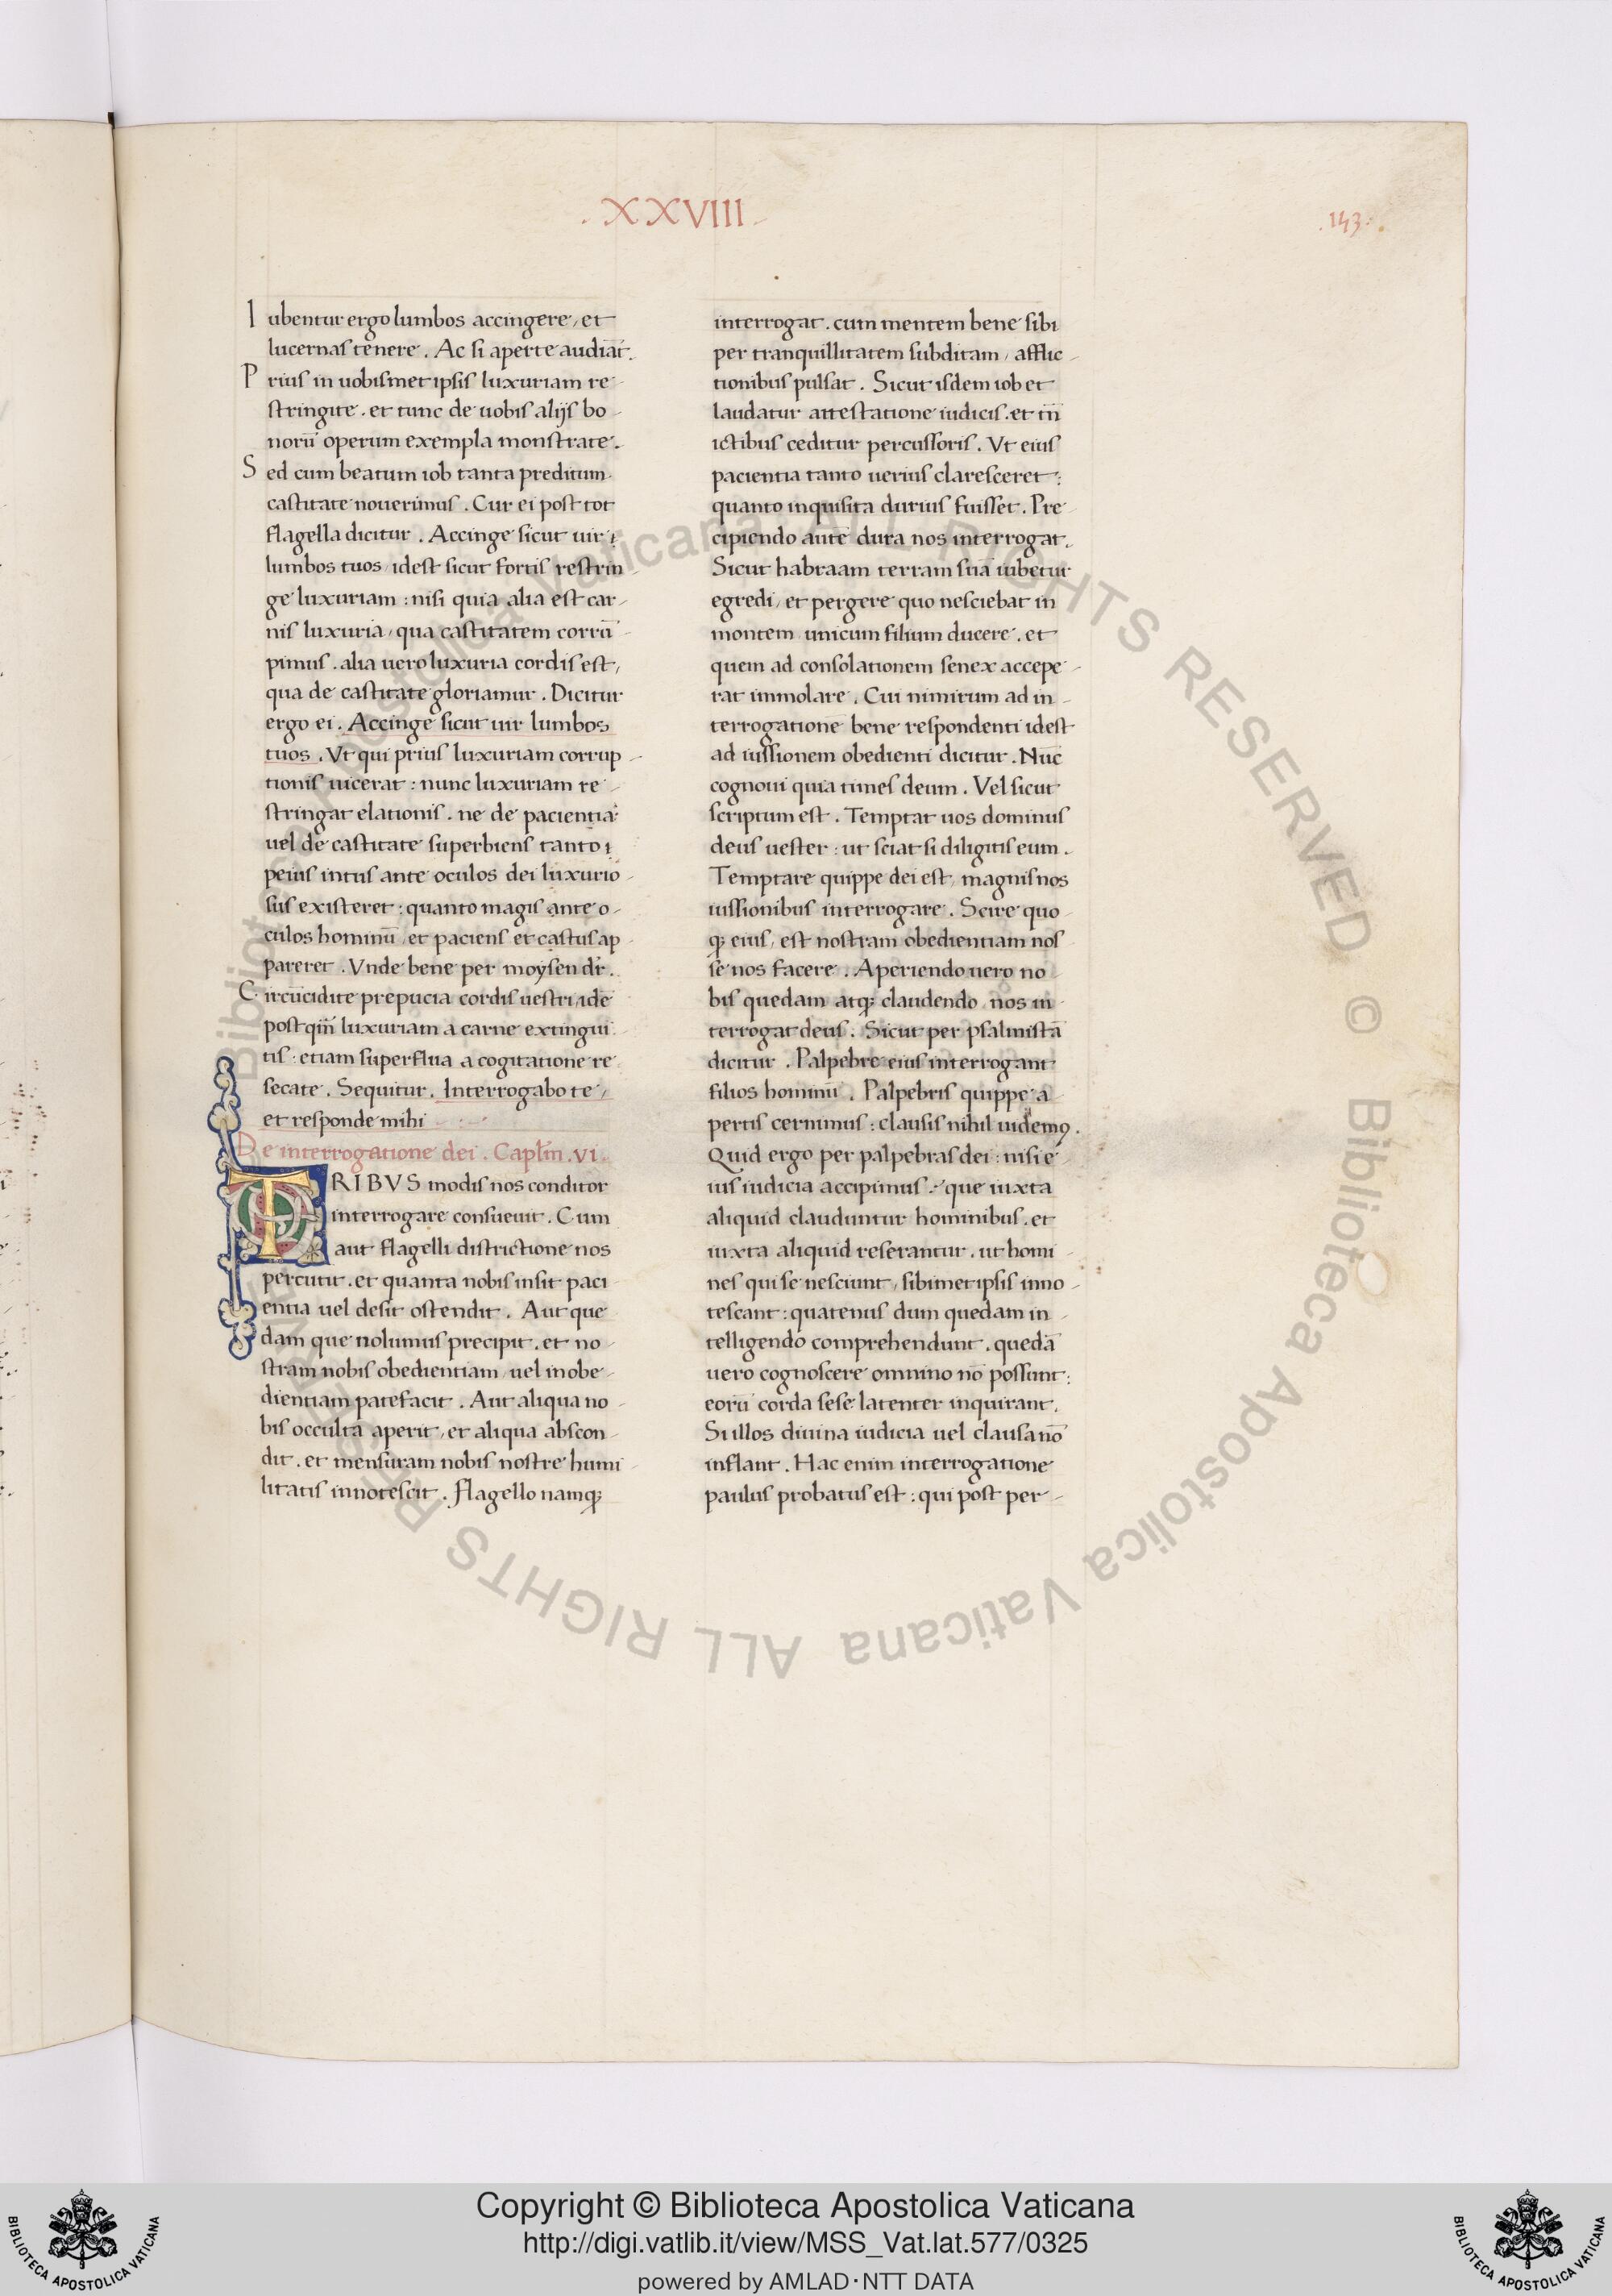 .XXVIII.
.143.
Iubentur ergo lumbos accingere, et
lucernas tenere. Ac si aperte audiāt.
Prius in uobismet ipsis luxuriam re-
stringite. et tunc de uobis alijs bo-
norū operum exempla monstrate.
Sed cum beatum iob tanta preditum
castitate nouerimus. Cur ei post tot
flagella dicitur. Accinge sicut uir
lumbos tuos, idest sicut fortis restrin-
ge luxuriam: nisi quia alia est car-
nis luxuria, qua castitatem corrū-
pimus. alia uero luxuria cordis est,
qua de castitate gloriamur. Dicitur
ergo ei. Accinge sicut uir lumbos
tuos. Vt qui prius luxuriam corrup-
tionis uicerat: nunc luxuriam re-
stringat elationis. ne de pacientia
uel de castitate superbiens tanto
peius intus ante oculos dei luxurio-
sus existeret: quanto magis ante o-
culos hominū, et paciens et castus ap
pareret. Vnde bene per moysen dr̄.
Circūcidite prepucia cordis uestri, ide
postqm̄ luxuriam a carne extingui
tis: etiam superflua a cogitatione re-
secate. Sequitur. Interrogabo te,
et responde mihi
De interrogatione dei. Capl̄m. VI.
TRIBVS modis nos conditor
interrogare consueuit. Cum
aut flagelli districtione nos
percutit. et quanta nobis insit paci-
entia uel desit ostendit. Aut que
dam que nolumus precipit. et no-
stram nobis obedientiam, uel inobe-
dientiam patefacit. Aut aliqua no-
bis occulta aperit, et aliqua abscon-
dit. et mensuram nobis nostre humi-
litatis innotescit. Flagello namq;
interrogat. cum mentem bene sibi
per tranquillitatem subditam, afflic-
tionibus pulsat. Sicut isdem iob et
laudatur attestatione iudicis. et tn̄
ictibus ceditur percussoris. Vt eius
pacientia tanto uerius claresceret:
quanto inquisita durius fuisset. Pre-
cipiendo autē dura nos interrogat.
Sicut habraam terram suā iubetur
egredi, et pergere quo nesciebat in
montem unicum filium ducere. et
quem ad consolationem senex accepe-
rat immolare. Cui nimirum ad in-
terrogationē bene respondenti idest
ad iussionem obedienti dicitur. Nūc
cognoui quia times deum. Vel sicut
scriptum est. Temptat uos dominus
deus uester: ut sciat si diligitis eum.
Temptare quippe dei est, magnis nos
iussionibus interrogare. Scire quo-
q; eius, est nostram obedientiam nos
se nos facere. Aperiendo uero no
bis quedam atq; claudendo, nos in-
terrogat deus. Sicut per psalmistā
dicitur. Palpebre eius interrogant
filios hominū. Palpebris quippe a-
pertis cernimus: clausis nihil uidemꝯ.
Quid ergo per palpebras dei: nisi e-
ius iudicia accipimus: que iuxta
aliquid clauduntur hominibus. et
iuxta aliquid reserantur. ut homi-
nes qui se nesciunt, sibimet ipsis inno-
tescant: quatenus dum quedam in-
telligendo comprehendunt. quedā
uero cognoscere omnino nō possunt:
eorū corda sese latenter inquirant.
Si illos diuina iudicia uel clausa nō
inflant. Hac enim interrogatione
paulus probatus est: qui post per-
Biblioteca Apostolica Vaticana ALL RIGHTS RESERVED ©
Biblioteca Apostolica Vaticana ALL RIGHTS RESERVED ©
Copyright © Biblioteca Apostolica Vaticana
http://digi.vatlib.it/view/MSS_Vat.lat.577/0325
powered by AMLAD·NTT DATA
BIBLIOTECA APOSTOLICA VATICANA
BIBLIOTECA APOSTOLICA VATICANA